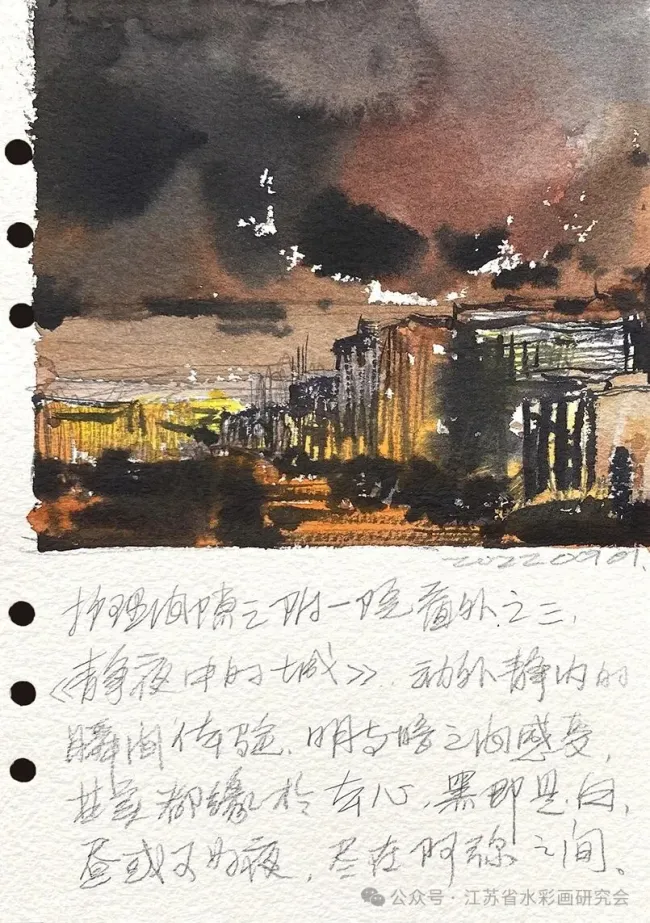 20220901.
护理间隙之附一院窗外之二,
《静夜中的城》. 动外静内的
瞬间体验. 明与暗之间感受,
其实都缘于在心. 黑即是白,
昼或又为夜, 尽在阿弥之间。
公众号·江苏省水彩画研究会